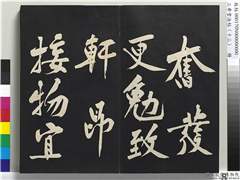 奮發
更勉致
軒昂
接物宜